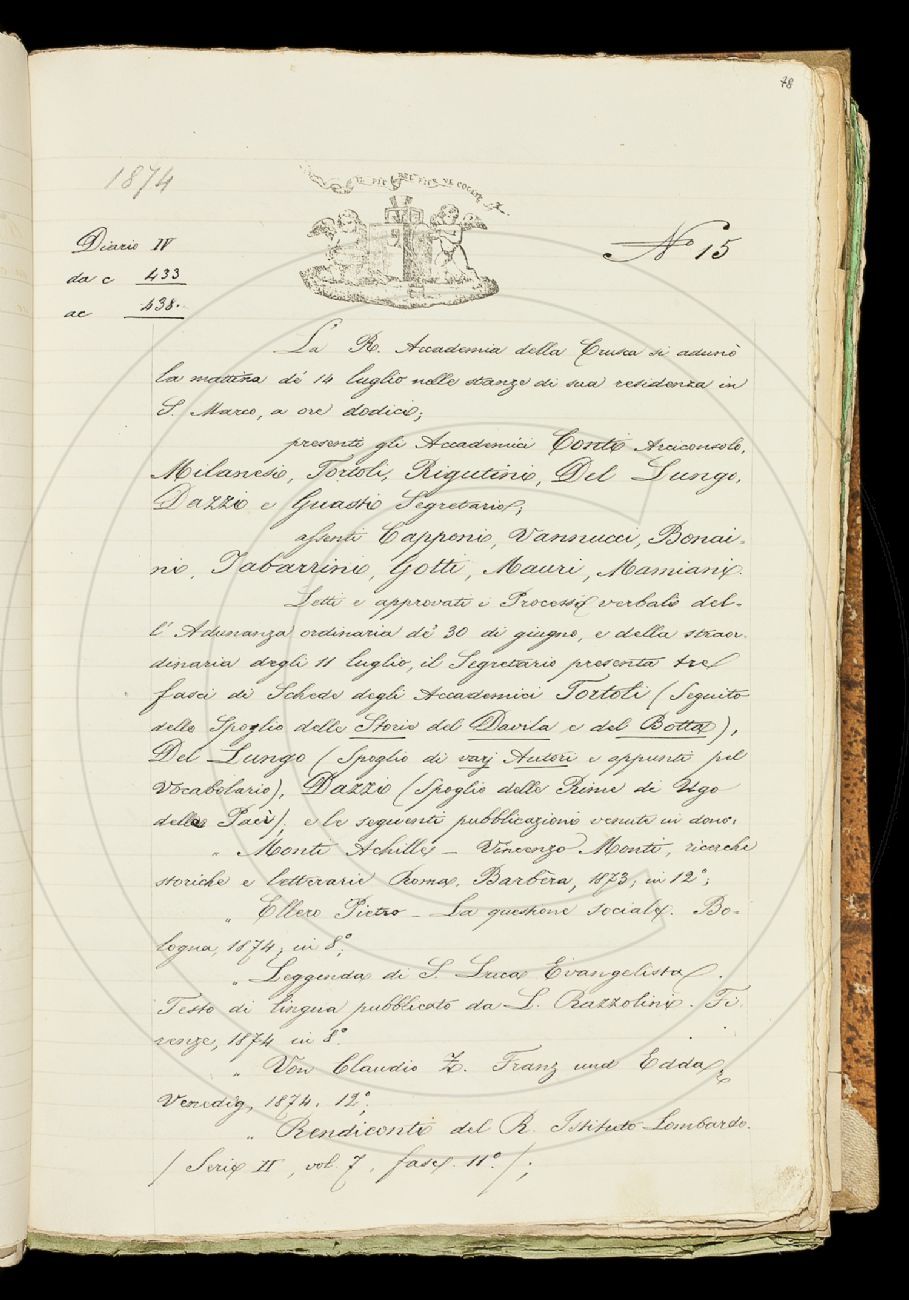 78
1874
IL PIÙ BEL FIOR NE COGLIE
Diario IV
da c 433
ac 438.
No 15
La R. Accademia della Crusca si adunò
la mattina de' 14 luglio nelle stanze di sua residenza in
S. Marco, a ore dodici;
presenti gli Accademici Conti Arciconsolo,
Milanesi, Tortoli, Rigutini, Del Lungo,
Dazzi e Guasti Segretario;
assenti Capponi, Vannucci, Bonai-
ni, Tabarrini, Gotti, Mauri, Mamiani.
Letti e approvati i Processi verbali del-
l'Adunanza ordinaria de' 30 di giugno, e della straor-
dinaria degli 11 luglio, il Segretario presenta tre
fasci di Schede degli Accademici Tortoli (Seguito
dello Spoglio delle Storie del Davila e del Botta),
Del Lungo (Spoglio di varj Autori e appunti pel
Vocabolario), Dazzi (Spoglio delle Rime di Ugo
della Paci), e le seguenti pubblicazioni venute in dono:
" Monti Achille – Vincenzo Monti, ricerche
storiche e letterarie Roma, Barbèra, 1873; in 12°;
" Ellero Pietro – La questione sociale. Bo-
logna, 1874; in 8°;
" Leggenda di S. Luca Evangelista.
Testo di lingua pubblicato da L. Razzolini. Fi-
renze, 1874 in 8°.
" Von Claudio Z. Franz und Edda
Venedig, 1874. 12°;
" Rendiconti del R. Istituto Lombardo.
(Serie II, vol. 7, fasc. 11°.);